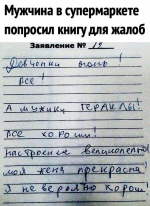 Мужчина в супермаркете
попросил книгу для жалоб
Заявление № 12
Девчонки огонь!
Все!
А мужики ГЕРАКЛЫ!
Все хороши!
настроение великолепно!
моя жена прекрасна!
Я невероятно хорош!